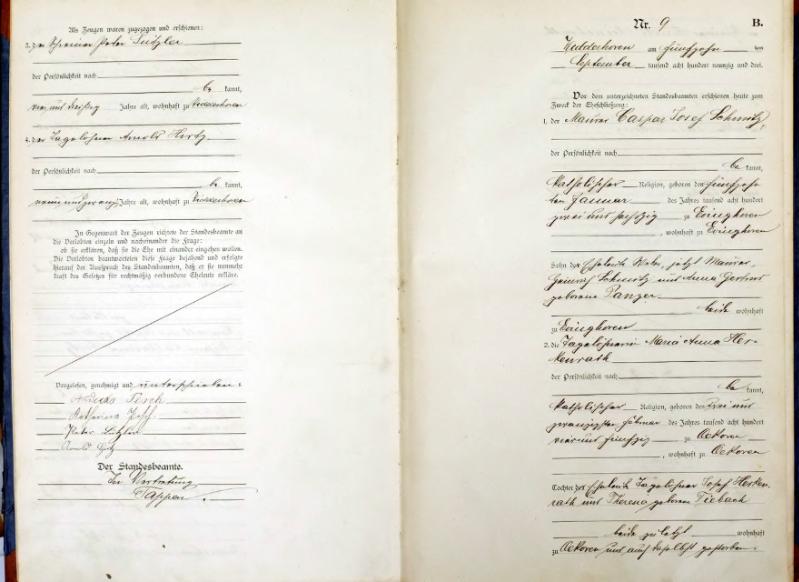 Als Zeugen waren zugezogen und erschienen:
3. der Schreiner Peter
der Persönlichkeit nach
be kannt,
vier und dreißig Jahre alt, wohnhaft zu Niederkoven
4. der Tagelöhner Arnold Hertz
der Persönlichkeit nach
be kannt,
neun und zwanzig Jahre alt, wohnhaft zu
In Gegenwart der Zeugen richtete der Standesbeamte an
die Verlobten einzeln und nacheinander die Frage:
ob sie erklären, daß sie die Ehe mit einander eingehen wollen.
Die Verlobten beantworteten diese Frage bejahend und erfolgte
hierauf der Ausspruch des Standesbeamten, daß er sie nunmehr
kraft des Gesetzes für rechtmäßig verbundene Eheleute erkläre.
Vorgelesen, genehmigt und unterschrieben:
Katharina
Peter
Arnold
Der Standesbeamte.
In Vertretung
Tappen
Nr. 9 B.
am fünfzehn ten
September tausend acht hundert neunzig und drei.
Vor dem unterzeichneten Standesbeamten erschienen heute zum
Zweck der Eheschließung:
1. der Maurer Caspar Josef Schmitz,
der Persönlichkeit nach
be kannt,
katholischer Religion, geboren den fünfzehn
ten Januar des Jahres tausend acht hundert
zwei und sechszig zu
, wohnhaft zu
Sohn der Eheleute jetzt Maurer
Heinrich Schmitz und Anna Gertrud
geborene Panzer
beide wohnhaft
zu
2. die Tagelöhnerin Maria Anna Her-
kenrath
der Persönlichkeit nach
be kannt,
katholischer Religion, geboren den drei und
zwanzigsten Februar des Jahres tausend acht hundert
vier und fünfzig zu Oekoven
, wohnhaft zu Oekoven
Tochter der Eheleute Tagelöhner Josef Herken-
rath und Theresia geborene Tiebach
beide zuletzt wohnhaft
zu Oekoven und auch daselbst gestorben.